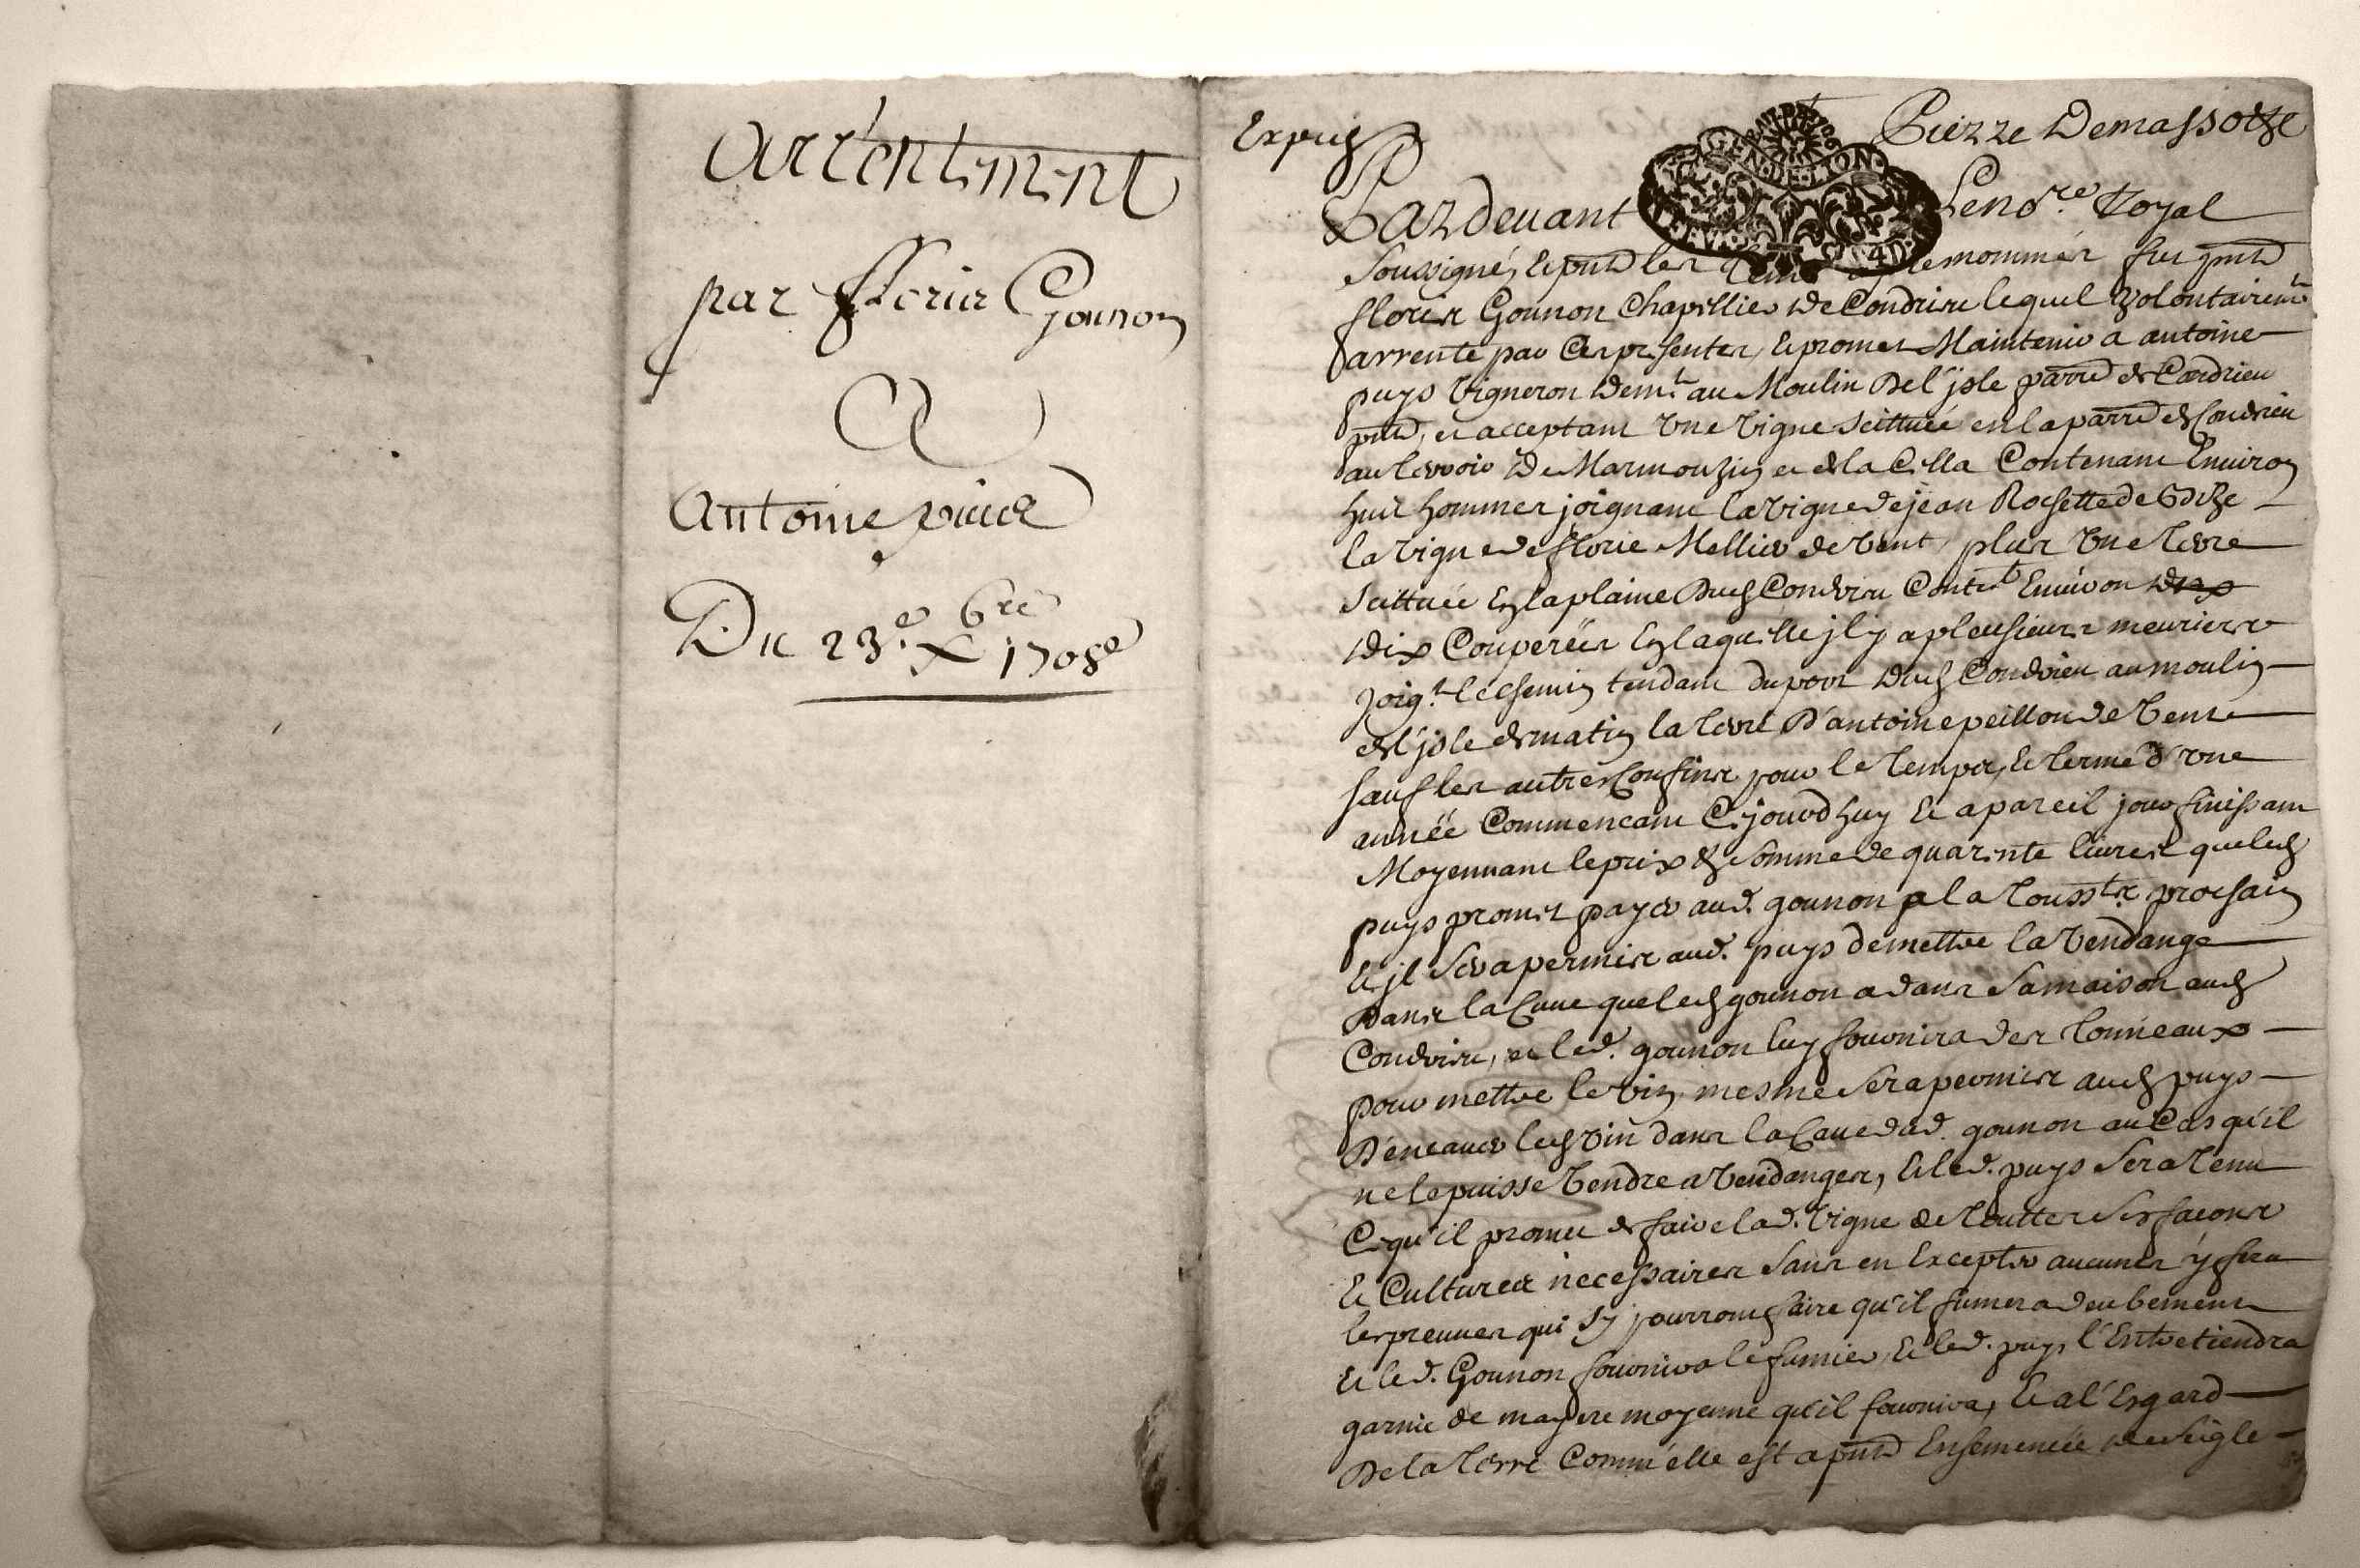 Arrentement
par fflorir Gounon
A
Antoine puicz
Du 23.e Xbre 1708
Expués
Pierre Demassotze
Pardevant Leno.re Royal
Soussigné, & pnt les nommés fut pnt
florix Gounon Chapellier de Condrieu lequel volontairemt
arrente par Ces presentes, & promet Maintenir a antoine
puys vigneron demt au Moulin De l'jsle parre de Condrieu
pnt, et acceptant une vigne scittuée en la parre de Condrieu
au Terroir De Marmouzin et de la Cilla Contenant Environ
huit hommes joignant la vigne de jean Rochette de Bize
la vigne de florie Mellier de vent, plus une Terre
scittuée En la plaine dud Condrieu Contt Environ dix
dix Couperées En laquelle jl y a pleusieurs meuriers
joigt le chemin tendant du port dud Condrieu au moulin
de l'jsle de matin la terre D'antoine peillon de vent
sauf les autres Confins pour le temps, & terme d'une
année Commencant Cejourdhuy & a pareil jour finissant
Moyennant le prix & somme de quarante livres que led
puys promet payer aud. gounon a la Tousst prochain
& jl sera permis aud. puys de mettre la vendange
Dans la Cuve que led gounon a dans sa maison aud
Condrieu, et led. gounon luy fournira des Tonneaux
pour mettre le vin mesme sera permis aud puys
D'encaver led vin dans la Cave dud. gounon au Cas qu'il
ne le puisse vendre a vendanges, & led. puys sera tenu
Ce qu'il promet de faire lad. vigne de toutte ses facons
& Cultures necessaires sans en Excepter aucunes y fera
les preuves qui s'y pourront faire qu'il fumera deubement
& led. Gounon fournira le fumier, & led. puys l'Entretiendra
garnie de mayere moyenne qu'il fournira, & a l'Esgard
De la terre Comme elle est a pnt Ensemencée de seigle